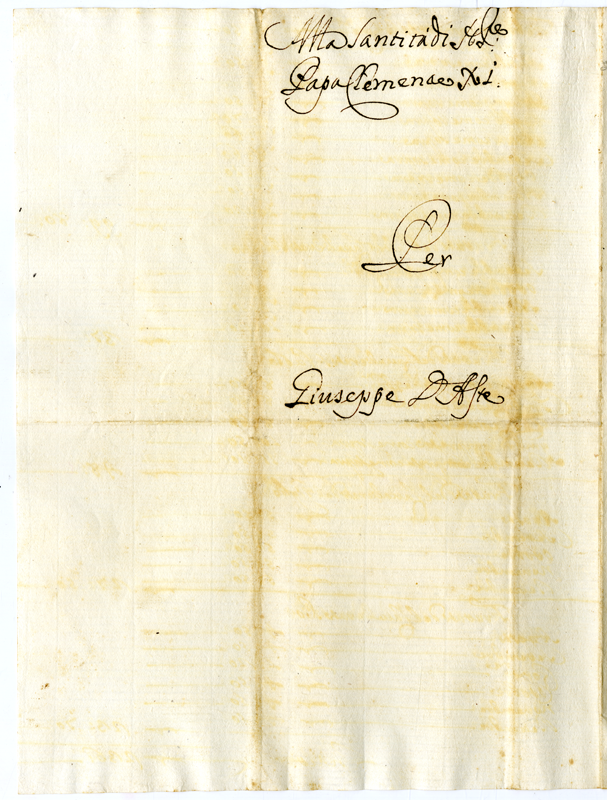 Alla Santità di N.S.re
Papa Clemente XI.
Per
Giuseppe D'Aste